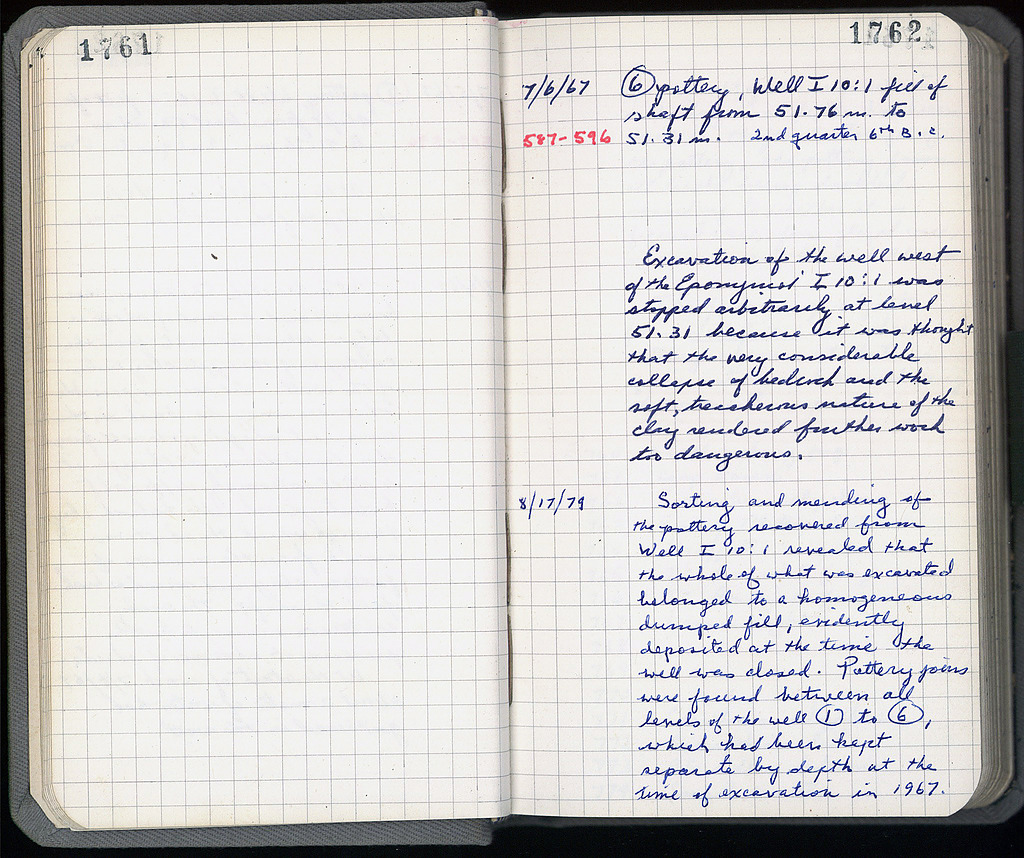 1761
1762
7/6/67 ⑥ pottery, Well I 10:1 fill of
shaft from 51.76 m. to
587-596 51.31 m. 2nd quarter 6th B.C.
Excavation of the well west
of the Eponymoi I 10:1 was
stopped arbitrarily at level
51.31 because it was thought
that the very considerable
collapse of bedrock and the
soft, treacherous nature of the
clay rendered further work
too dangerous.
8/17/79 Sorting and mending of
the pottery recovered from
Well I 10:1 revealed that
the whole of what was excavated
belonged to a homogeneous
dumped fill, evidently
deposited at the time the
well was closed. Pottery joins
were found between all
levels of the well ① to ⑥,
which had been kept
separate by depth at the
time of excavation in 1967.